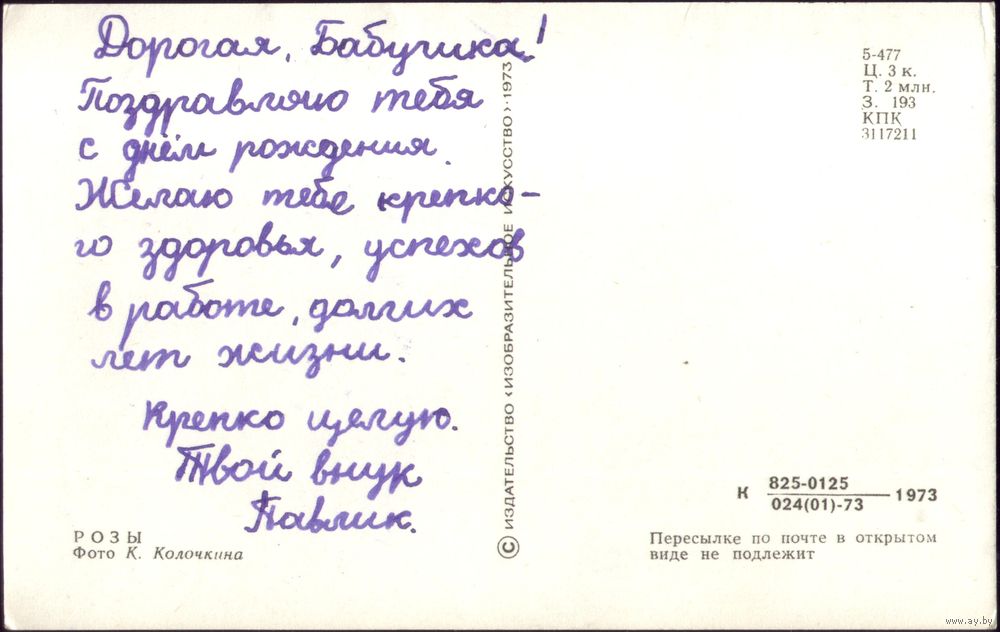 Дорогая, Бабушка!
Поздравляю тебя
с днём рождения.
Желаю тебе крепко-
го здоровья, успехов
в работе, долгих
лет жизни.
Крепко целую.
Твой внук
Павлик.
РОЗЫ
Фото К. Колочкина
© ИЗДАТЕЛЬСТВО «ИЗОБРАЗИТЕЛЬНОЕ ИСКУССТВО»·1973
5-477
Ц. 3 к.
Т. 2 млн.
З. 193
КПК
3117211
К 825-0125
024(01)-73 1973
Пересылке по почте в открытом
виде не подлежит
www.ay.by